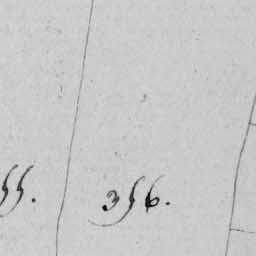 55. 356.